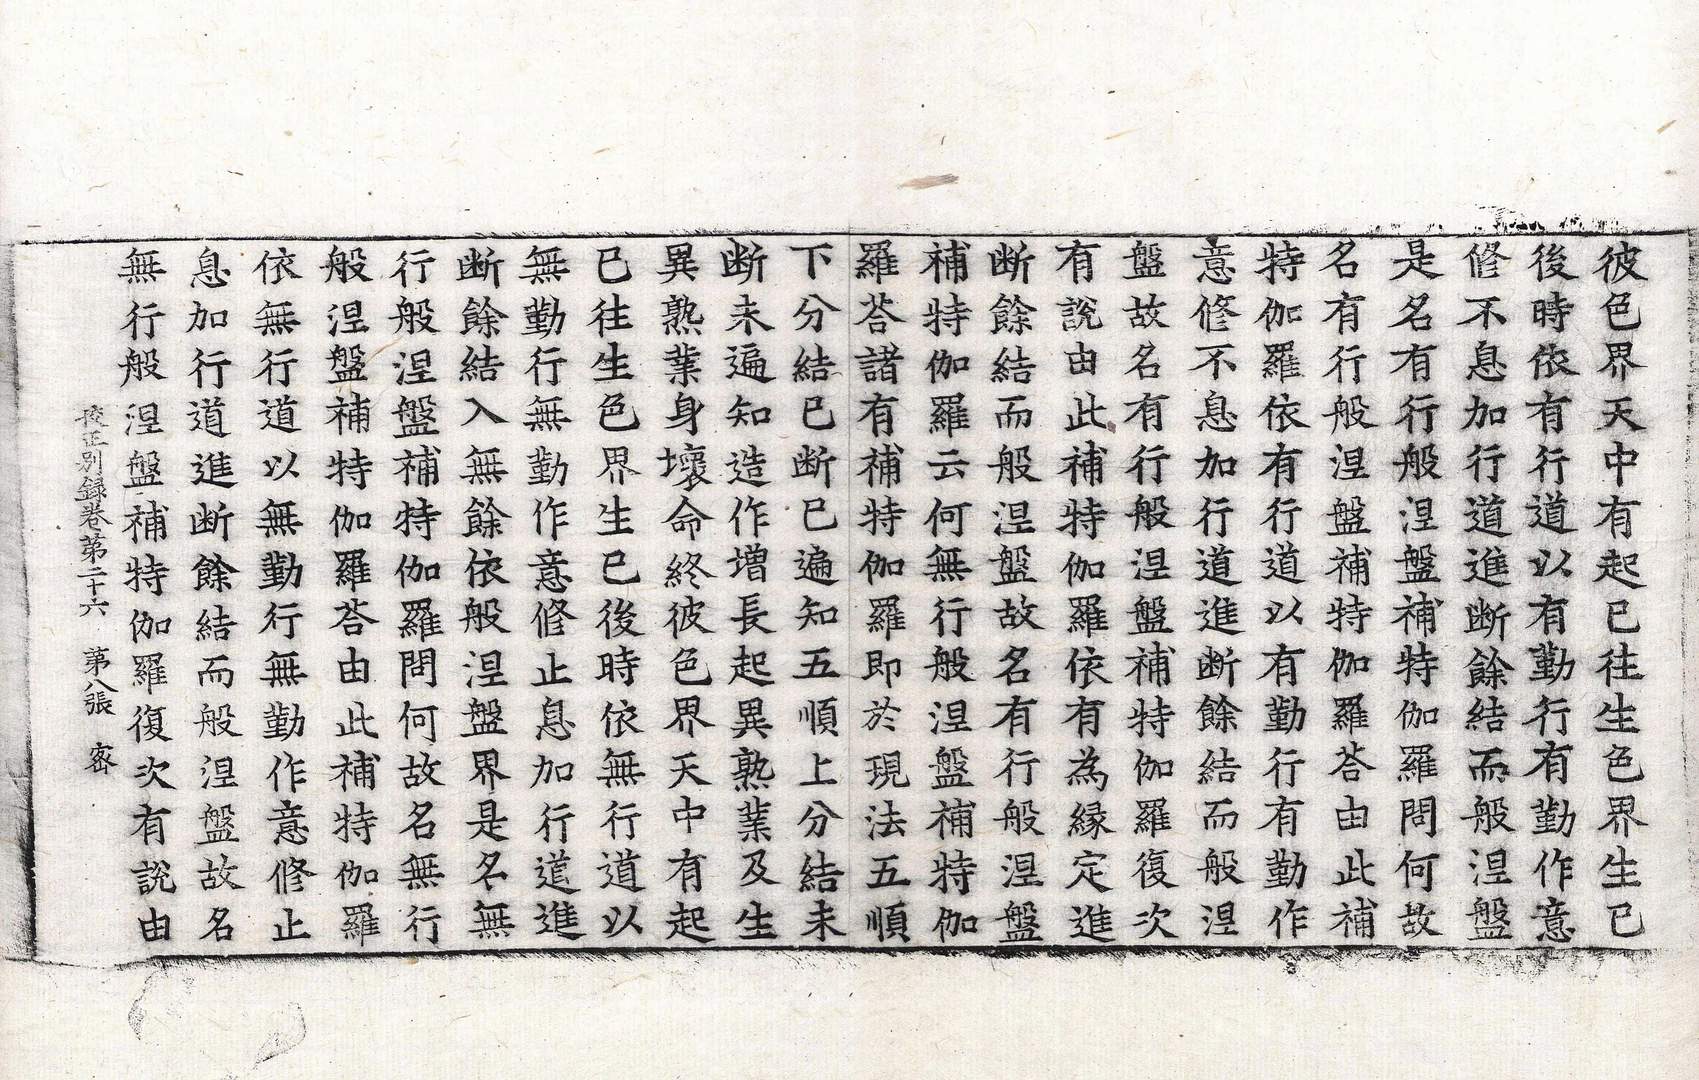 彼色界天中有起已往生色界生已
後時依有行道以有勤行有勤作意
修不息加行道進断餘結而般涅盤
是名有行般涅盤補特伽羅問何故
名有行般涅盤補特伽羅荅由此補
特伽羅依有行道以有勤行有勤作
意修不息加行道進断餘結而般涅
盤故名有行般涅盤補特伽羅復次
有說由此補特伽羅依有為縁定進
断餘結而般涅盤故名有行般涅盤
補特伽羅云何無行般涅盤補特伽
羅荅諸有補特伽羅即於現法五順
下分結已断已遍知五順上分結未
断未遍知造作增長起異熟業及生
異熟業身壞命終彼色界天中有起
已往生色界生已後時依無行道以
無勤行無勤作意修止息加行道進
断餘結入無餘依般涅盤界是名無
行般涅盤補特伽羅問何故名無行
般涅盤補特伽羅荅由此補特伽羅
依無行道以無勤行無勤作意修止
息加行道進断餘結而般涅盤故名
無行般涅盤補特伽羅復次有說由
校正別録卷第二十六　第八張　密